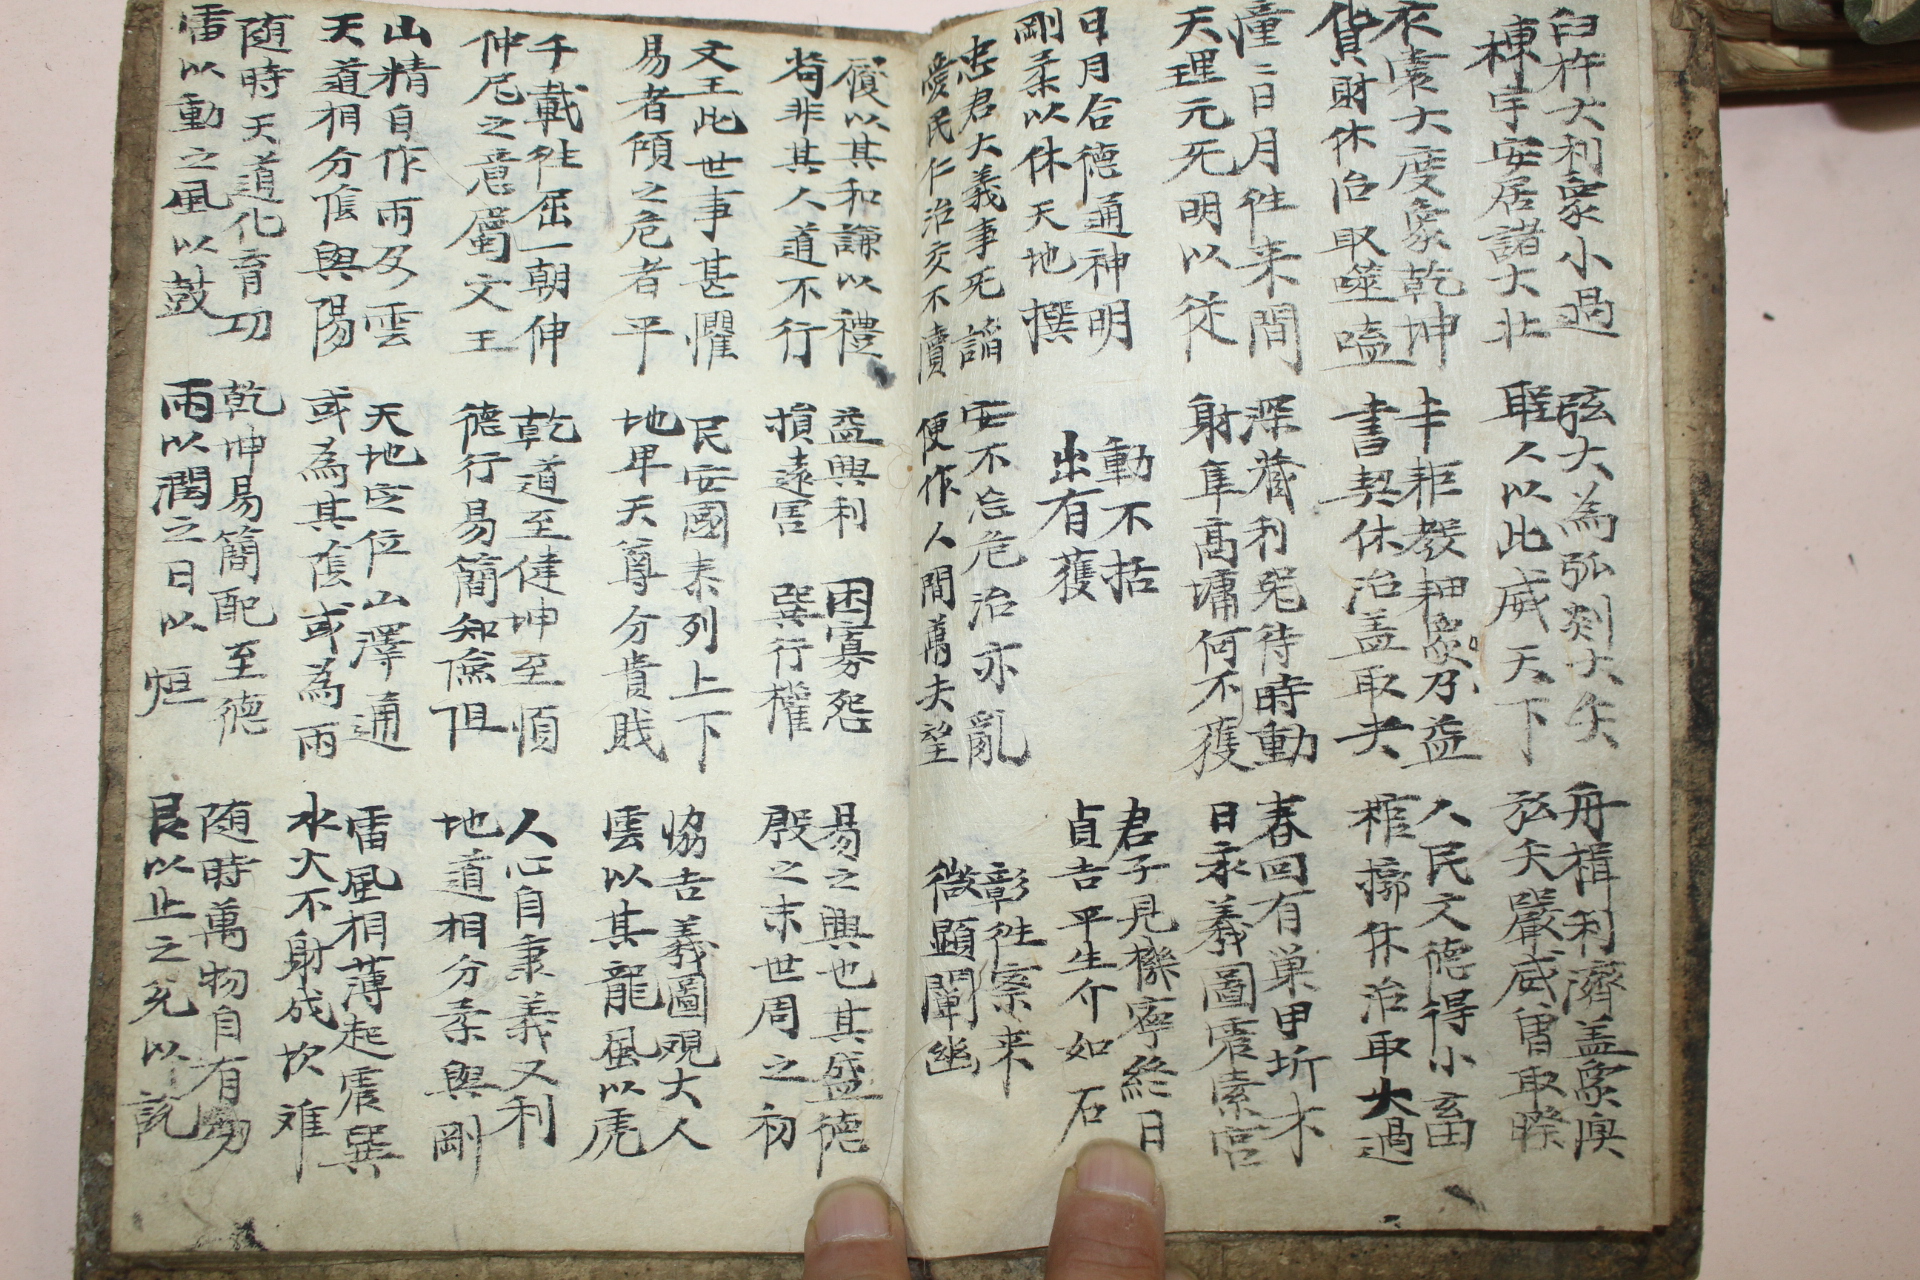 臼杵大利象小過 弦木為弧剡木矢 舟楫利濟盖象渙
棟宇安居諸大壯 聖人以此威天下 弦矢嚴威曾取睽
衣裳大度象乾坤 耟教耕象乃益 人民文德得小畜
貨財休治取噬嗑 書契休治盖取夬 棺槨休治取大過
憧〻日月往来間 深藏利器待時動 春回有巢甲坼木
天理元无明以従 射隼高墉何不獲 日永羲圖震索宮
日月合德通神明 動不括 君子見機寧終日
剛柔以休天地撰 出有獲 貞吉平生介如石
忠君大義事死諂 安不忘危治亦亂 彰往察来
愛民仁治交不瀆 便作人間萬夫望 微顯闡幽
履以其和謙以禮 益興利 困寡怨 易之興也其盛德
苟非其人道不行 損遠害 巽行權 殷之末世周之初
文王此世事甚懼 民安國泰列上下 協吉義圖覌大人
易者傾之危者平 地卑天尊分貴賎 雲以其龍風以虎
千載往屈一朝伸 乾道至健坤至順 人心自秉義又利
仲尼之意屬文王 德行易簡知險阻 地道相分柔與剛
山精自作雨及雲 天地定位山澤通 雷風相薄起震巽
天道相分陰與陽 或為其蔭或為雨 水火不射成坎难
随時天道化育功 乾坤易簡配至德 随時萬物自有功
雷以動之風以鼓 雨以潤之日以烜 艮以止之兌以説